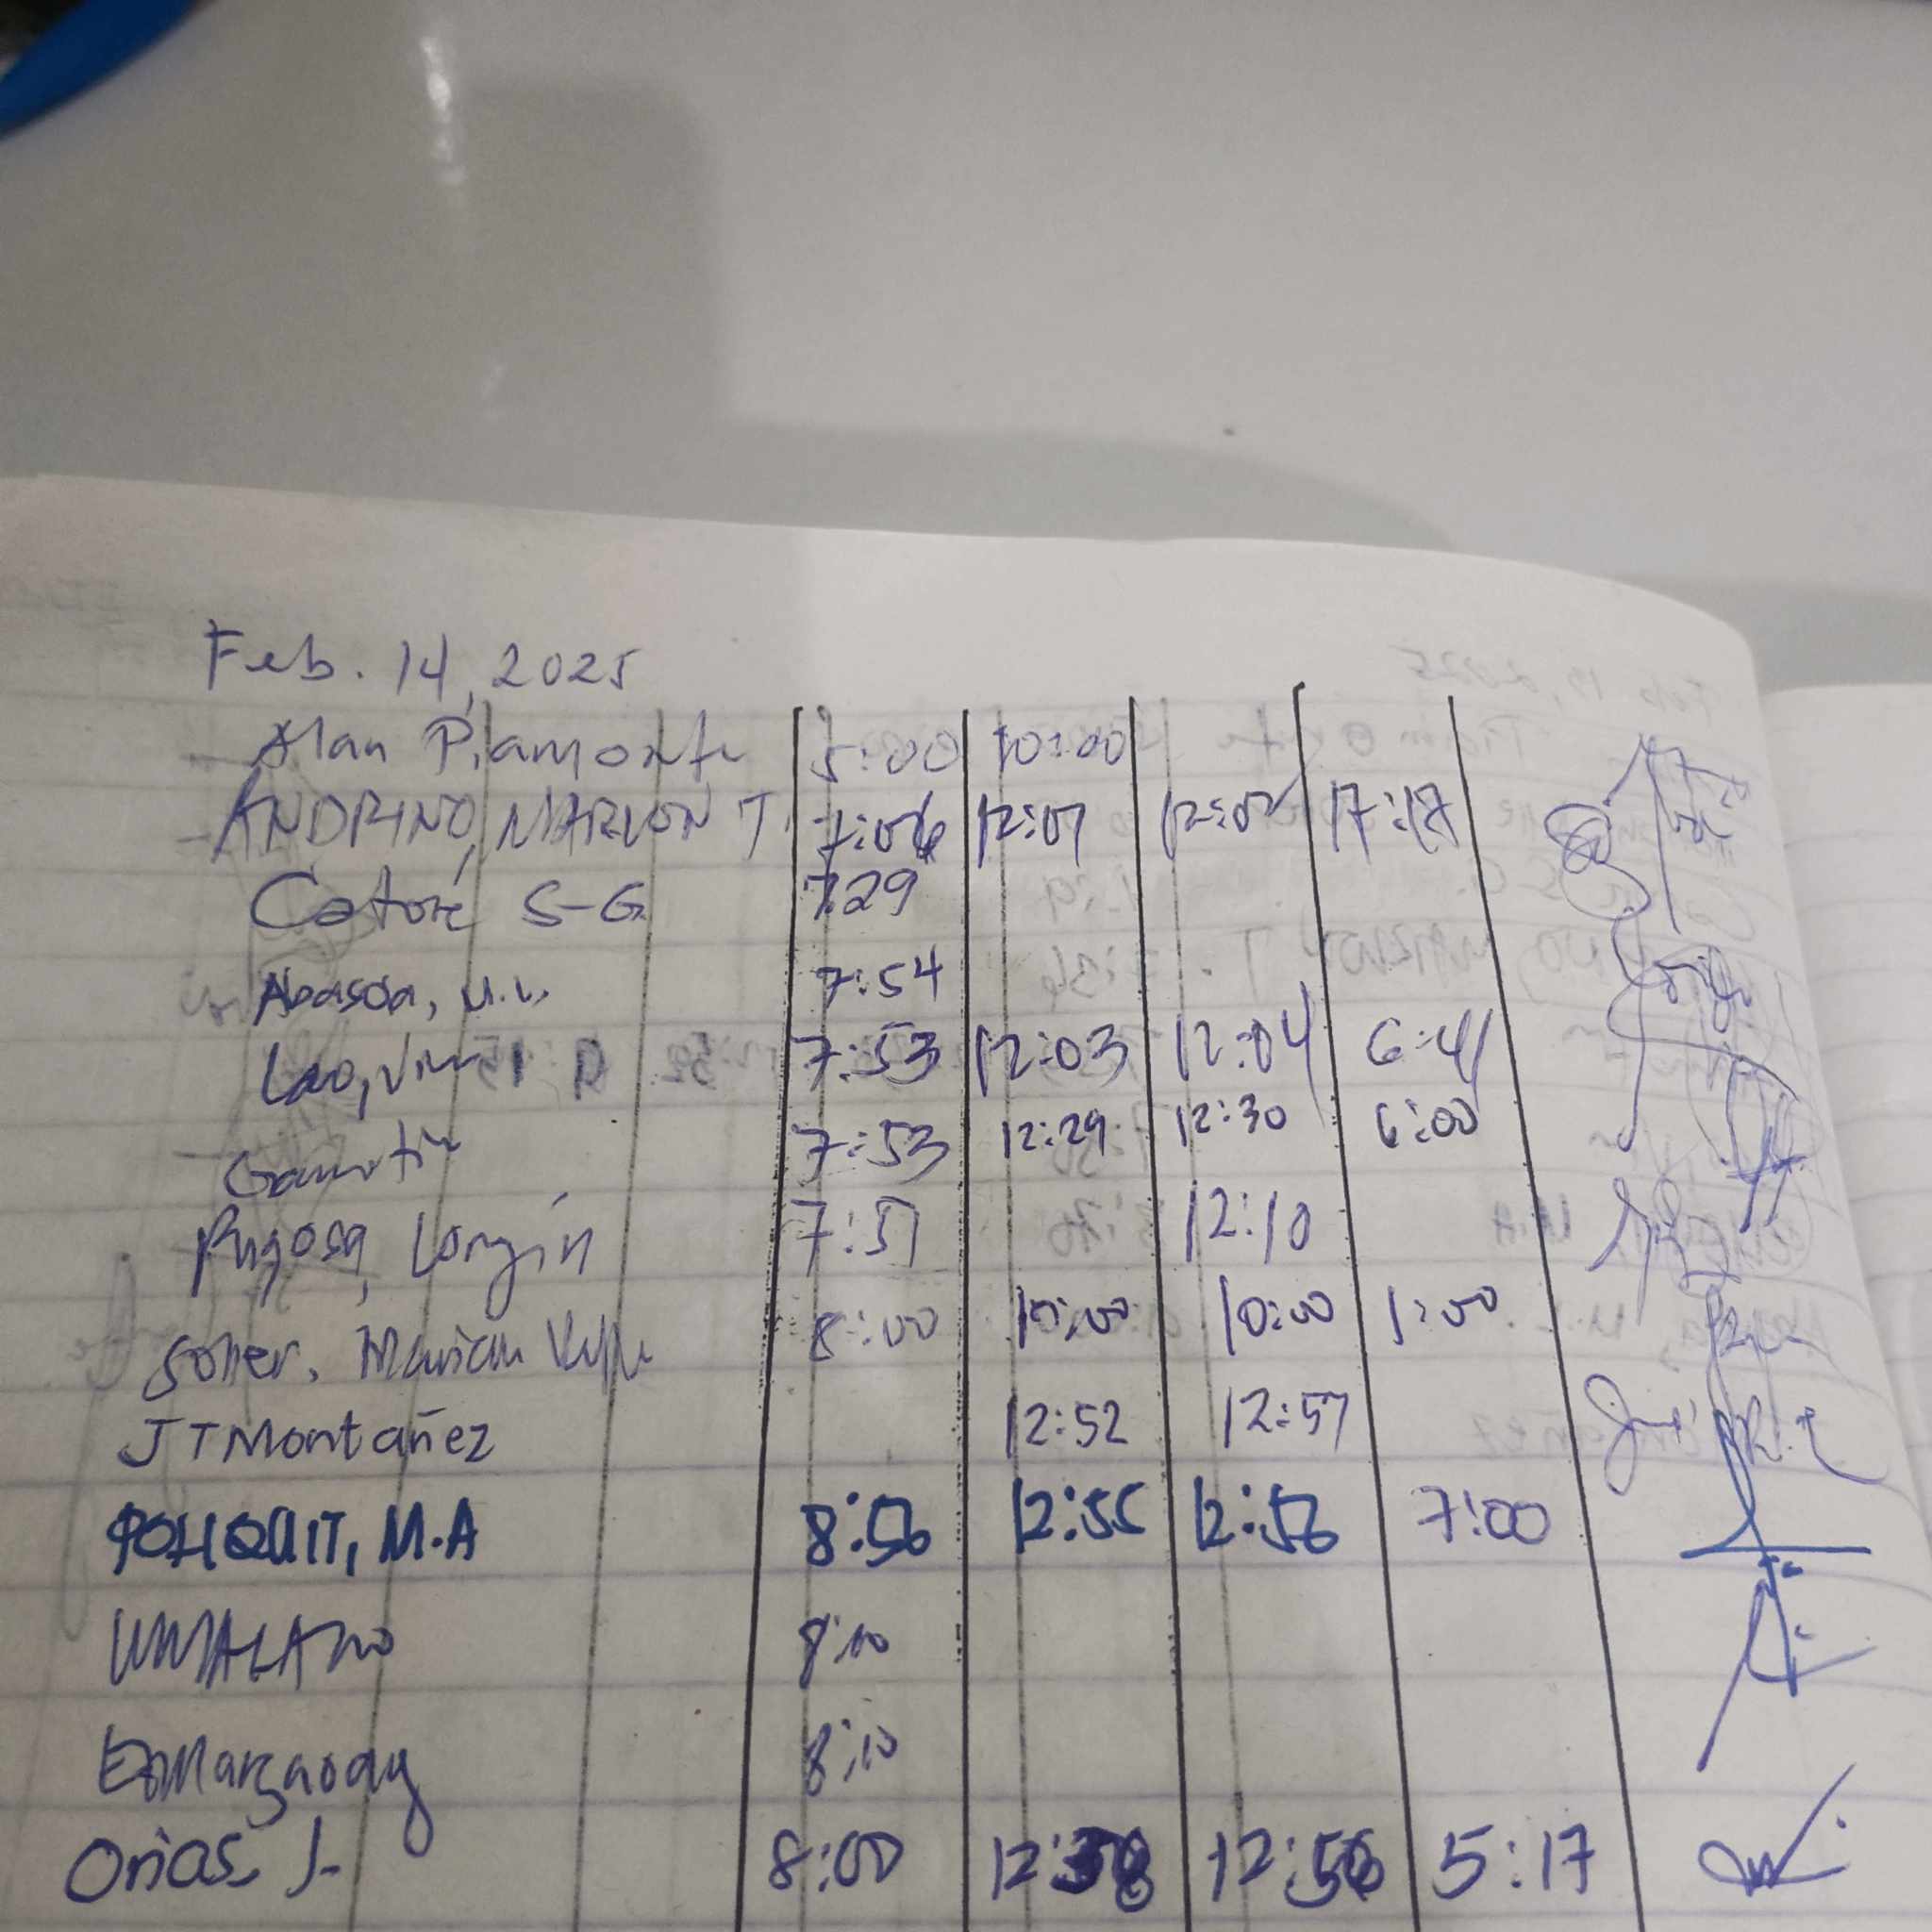 Feb. 14, 2025
Alan Piamonte 5:00 10:00
ANDRINO, MARLON T. 7:06 12:01 12:02 17:17
Catore S-G 7:29
Abasoa, M.L. 7:54
Lao, 7:53 12:03 12:04 6:41
7:53 12:29 12:30 6:00
Pugosa, Longin 7:51 12:10
Soller, Marian 8:00 10:00 10:00 1:00
JT Montañez 12:52 12:57
POLIQUIT, M.A 8:56 12:55 12:56 7:00
UMALANO 8:00
8:10
Orias, J. 8:00 5:17